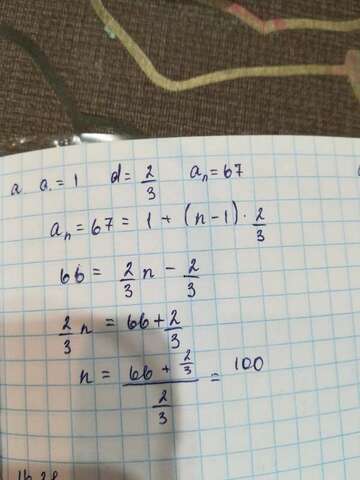 a a₁ = 1 d = 2/3 aₙ = 67
aₙ = 67 = 1 + (n-1) · 2/3
66 = 2/3 n - 2/3
2/3 n = 66 + 2/3
n = (66 + 2/3) / (2/3) = 100